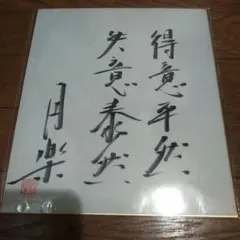 得意平然
失意泰然
月楽